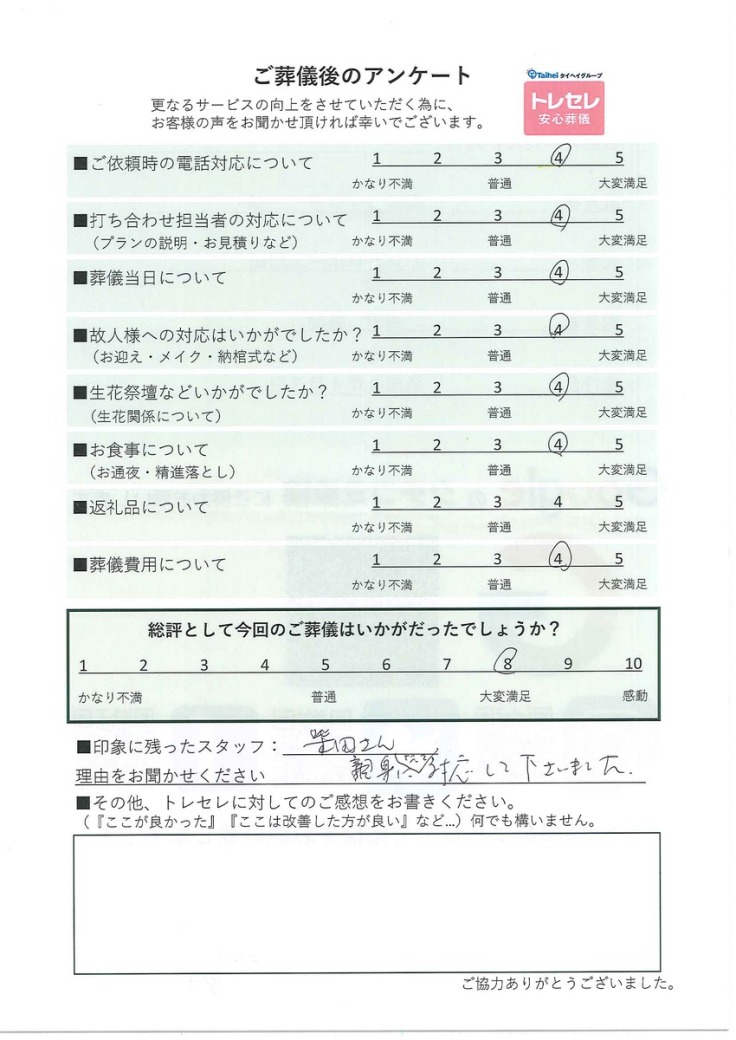 ご葬儀後のアンケート
Taihei タイヘイグループ
トレセレ
安心葬儀
更なるサービスの向上をさせていただく為に、
お客様の声をお聞かせ頂ければ幸いでございます。
■ご依頼時の電話対応について 1 2 3 4 5
かなり不満 普通 大変満足
■打ち合わせ担当者の対応について 1 2 3 4 5
（プランの説明・お見積りなど） かなり不満 普通 大変満足
■葬儀当日について 1 2 3 4 5
かなり不満 普通 大変満足
■故人様への対応はいかがでしたか？ 1 2 3 4 5
（お迎え・メイク・納棺式など） かなり不満 普通 大変満足
■生花祭壇などいかがでしたか？ 1 2 3 4 5
（生花関係について） かなり不満 普通 大変満足
■お食事について 1 2 3 4 5
（お通夜・精進落とし） かなり不満 普通 大変満足
■返礼品について 1 2 3 4 5
かなり不満 普通 大変満足
■葬儀費用について 1 2 3 4 5
かなり不満 普通 大変満足
総評として今回のご葬儀はいかがだったでしょうか？
1 2 3 4 5 6 7 8 9 10
かなり不満 普通 大変満足 感動
■印象に残ったスタッフ： 柴田さん
理由をお聞かせください 親身 対応して下さいました。
■その他、トレセレに対してのご感想をお書きください。
（『ここが良かった』『ここは改善した方が良い』など...）何でも構いません。
ご協力ありがとうございました。